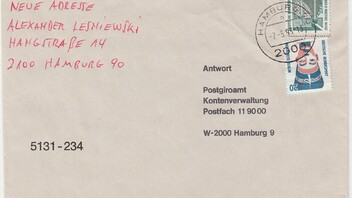 NEUE ADRESSE
ALEXANDER LESNIEWSKI
HANGSTRAßE 14
2100 HAMBURG 90
HAMBURG
200
Antwort
Postgiroamt
Kontenverwaltung
Postfach 11 90 00
W-2000 Hamburg 9
5131-234